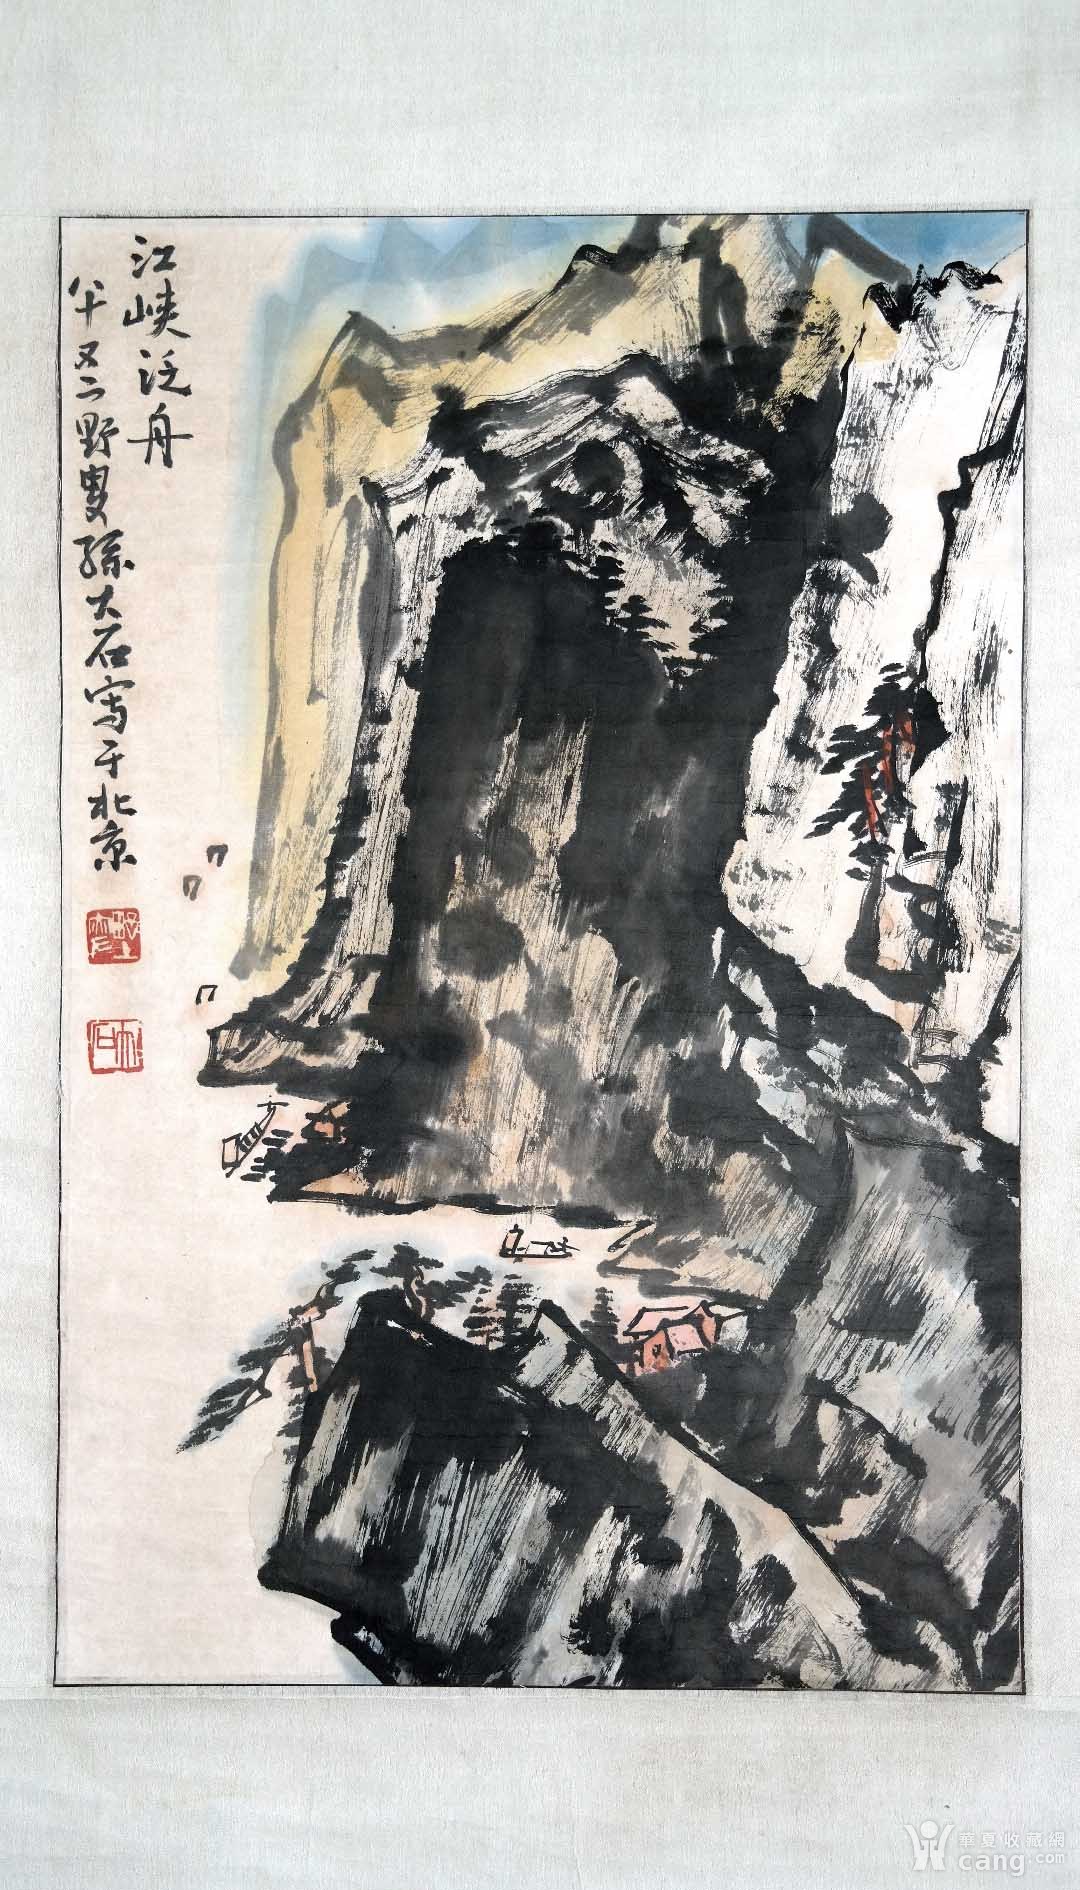 江峡泛舟
八十又二野叟孙大石写于北京
大石
華夏收藏網
cang.com